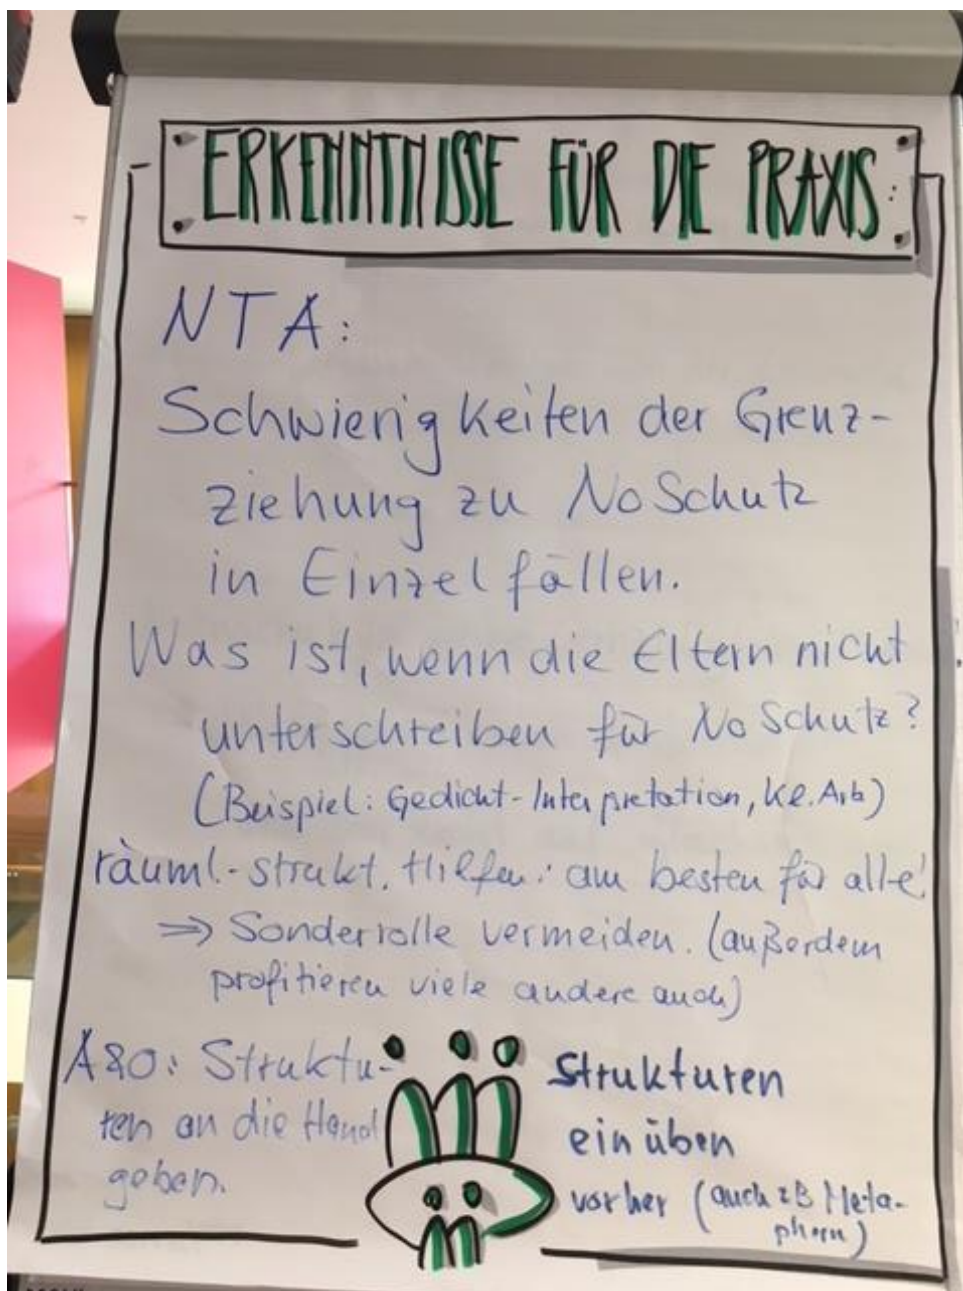 ERKENNTNISSE FÜR DIE PRAXIS:
NTA:
Schwierigkeiten der Grenz-
ziehung zu NoSchutz
in Einzelfällen.
Was ist, wenn die Eltern nicht
unterschreiben für NoSchutz?
(Beispiel: Gedicht-Interpretation, Kl.Arb)
räuml.-strukt. Hilfen: am besten für alle!
⇒ Sonderrolle vermeiden. (außerdem
profitieren viele andere auch)
A&O: Struktu-
ren an die Hand
geben.
Strukturen
einüben
vorher (auch zB Meta-
phern)